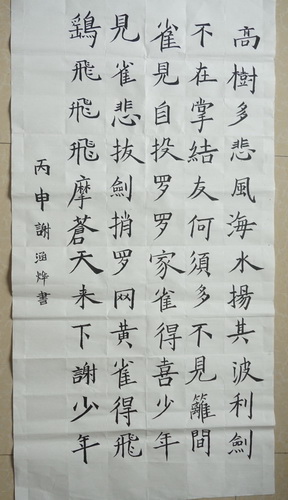 高樹多悲風海水揚其波利劍
不在掌結友何須多不見籬間
雀見自投罗罗家雀得喜少年
見雀悲拔劍捎罗网黄雀得飛
鷂飛飛飛摩蒼天来下謝少年
丙申謝烨書